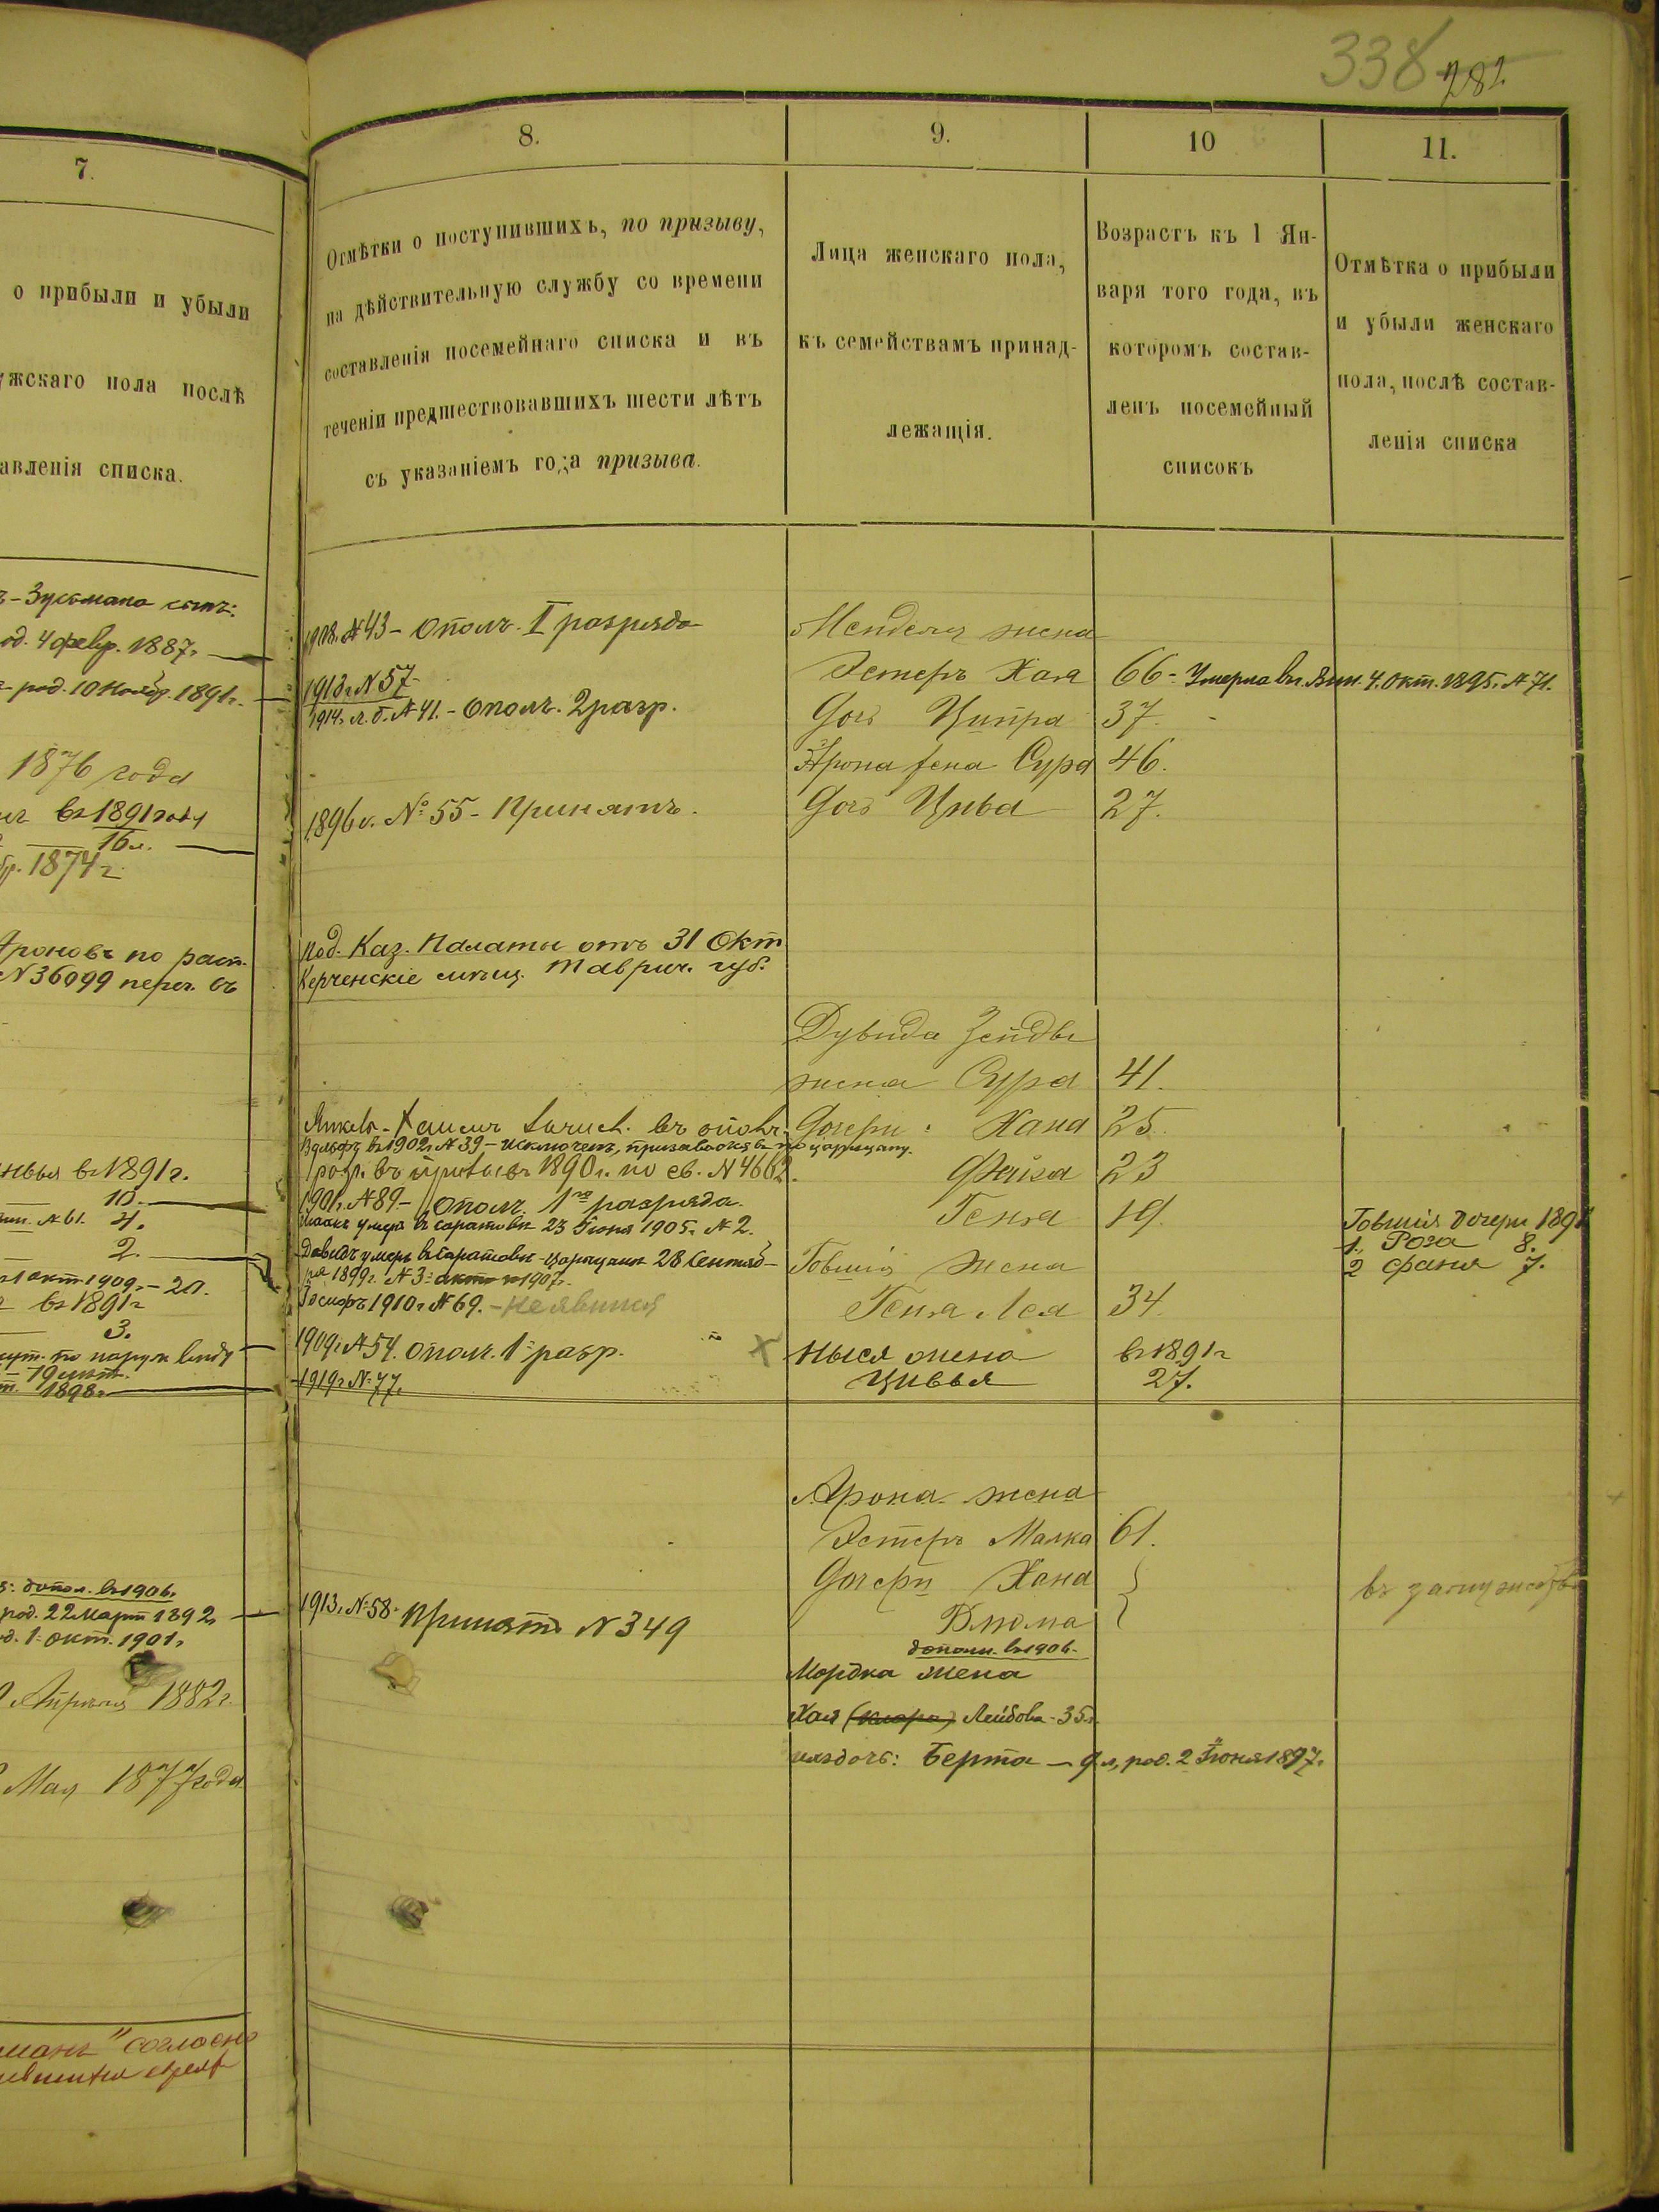 338 282.
7.
о прибыли и убыли
ужскаго пола послѣ
авленія списка.
8.
Отмѣтки о поступившихъ, по призыву,
на дѣйствительную службу со времени
составленія посемейнаго списка и въ
теченіи предшествовавшихъ шести лѣтъ
съ указаніемъ года призыва.
9.
Лица женскаго пола,
къ семействамъ принад-
лежащія.
10
Возрастъ къ 1 Ян-
варя того года, въ
которомъ состав-
ленъ посемейный
списокъ
11.
Отмѣтка о прибыли
и убыли женскаго
пола, послѣ состав-
ленія списка
Зусьмана сынъ:
од. 4 февр. 1887г.
род. 10 Ноябр. 1891г.
1876 года
въ 1891 году
16 л.
1874 г.
Ароновъ по расп.
N 36099 переч. въ
въ 1891 г.
10.
N 61. 4.
2.
окт 1909г. - 20.
въ 1891 г
3.
по наружн виду
19 лѣт.
1898 г.
допол. въ 1906г.
род. 22 Март 1892г
д. 1 окт. 1901г.
Апрѣля 1882г.
Мая 1877 года
манъ" согласно
1908г. N 43 - Ополч. I разряда
1913г. N 57
1914г. л. б. N 41. - Ополч. 2 разр.
1896 г. № 55 - Принятъ.
Под. Каз. Палаты отъ 31 Окт
Керченскіе мѣщ. Таврич. губ.
въ 1902г. N 39 - исключенъ, призывался въ по Царицыну.
разр. въ призывъ 1890 г. по св. N 4662.
1901г. N 89 - Ополч. 1го разряда.
Исаакъ умеръ въ Саратовѣ 23 Іюня 1905г. N 2.
Давидъ умеръ въ Саратовѣ - Царицынѣ 28 Сентяб-
ря 1899г. N 3: акт 1907г.
Іосифъ 1910г. N 69. - Неявился
1909г. N 54. Ополч. 1 разр.
1919г. N 77.
1913г. N 58. Принятъ N 349
Менделя жена
Эстеръ Хая 66 - Умерла въ 4 Окт. 1895г. N 71.
Дочь Ципра 37.
Арона жена Сура 46.
Дочь Цива 27.
Дувида Зейдвъ
жена Сура 41.
Дочери: Хана 25.
Фейга 23
Геня 19.
Товшія дочери 1891
1, Роза 8.
2 Фаня 7.
Товшія жена
Геня Лея 34.
х Ныся жена въ 1891г
Цивья 27.
Арона жена
Эстеръ Малка 61.
Дочери Хана
Блюма
въ замужествѣ
дополн. въ 1906.
Мордка жена
Хая (Клара) Лейбова - 35 л.
ихъ дочь: Берта - 9 л, род. 2 Іюня 1897г.